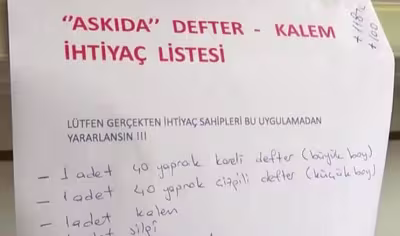 "ASKIDA" DEFTER - KALEM
İHTİYAÇ LİSTESİ
LÜTFEN GERÇEKTEN İHTİYAÇ SAHİPLERİ BU UYGULAMADAN
YARARLANSIN !!!
- 1 adet 40 yaprak kareli defter (büyük boy)
- 1 adet 40 yaprak çizgili defter (küçük boy)
- 1 adet kalem
silgi
+100